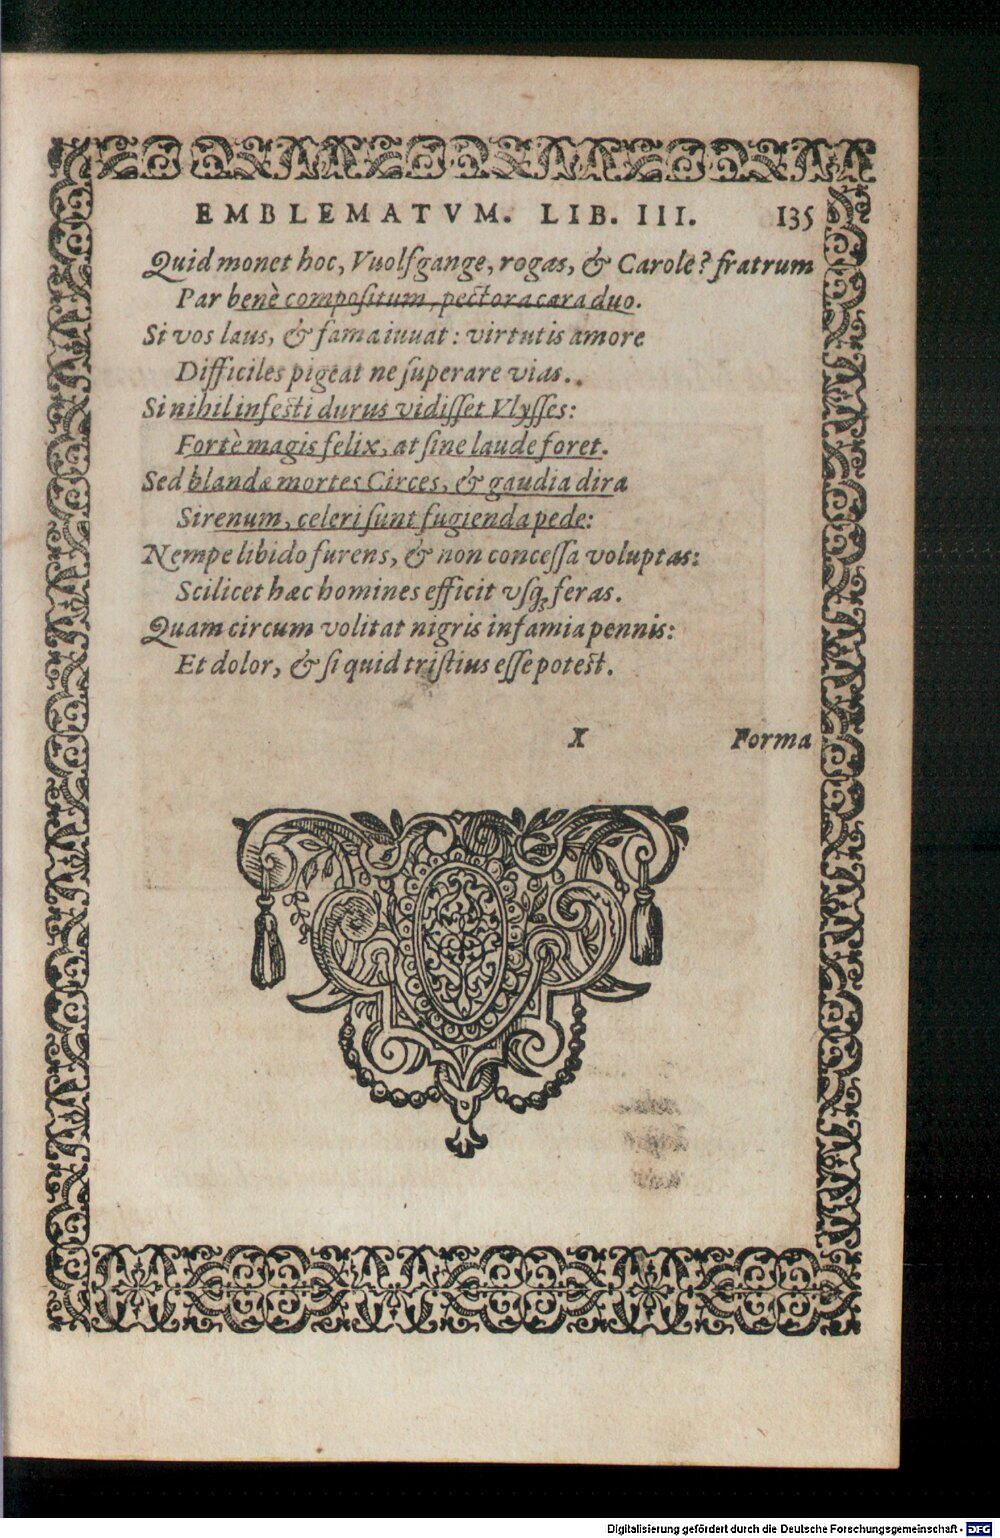 EMBLEMATVM. LIB. III. 135
Quid monet hoc, Vuolfgange, rogas, & Carole? fratrum
Par benè compoſitum, pectora cara duo.
Si vos laus, & fama iuuat: virtutis amore
Difficiles pigeat ne ſuperare vias.
Si nihil infeſti durus vidiſſet Vlyſſes:
Fortè magis felix, at ſine laude foret.
Sed blandæ mortes Circes, & gaudia dira
Sirenum, celeri ſunt fugienda pede:
Nempe libido furens, & non conceſſa voluptas:
Scilicet hæc homines efficit vſq; feras.
Quam circum volitat nigris infamia pennis:
Et dolor, & ſi quid triſtius eſſe poteſt.
X Forma
Digitalisierung gefördert durch die Deutsche Forschungsgemeinschaft - DFG